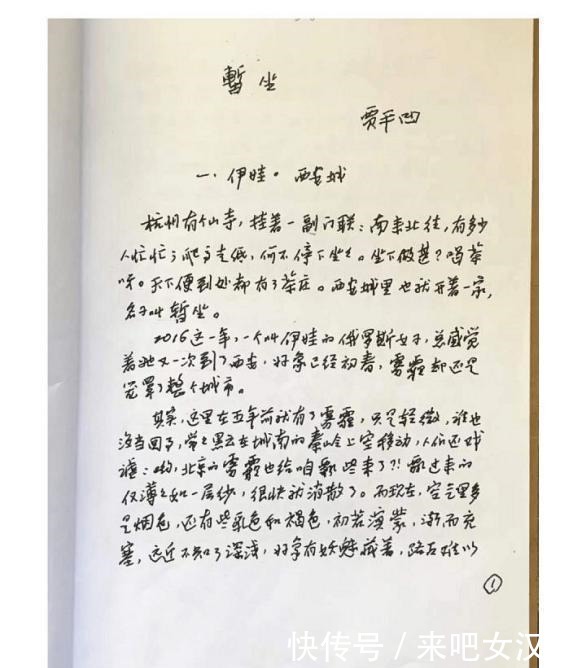 暂坐
贾平凹
一、伊娃。西安城
杭州有个山寺，挂着一副门联：南来北往，有多少
人忙忙；爬高走低，何不停下坐坐。坐下做甚？喝茶
呀。天下便到处都有了茶庄。西安城里也就开着一家，
名字叫暂坐。
2016这一年，一个叫伊娃的俄罗斯女子，总感觉
着她又一次到了西安，好象已经初春，雾霾却还是
笼罩了整个城市。
其实，这里在五年前就有了雾霾，只是轻微，谁也
没当回事，常常黑云在城南的秦岭上空移动，人们还戏
谑：哟，北京的雾霾也给咱飘些来了?!飘过来的
仅薄薄如一层纱，很快就消散了。而现在，空气里多
是烟色，还有些乳色和褐色，初若溟蒙，渐而充
塞，远近不知了深浅，好象有妖魅藏着，路石难以
1
快传号 / 来吧女汉